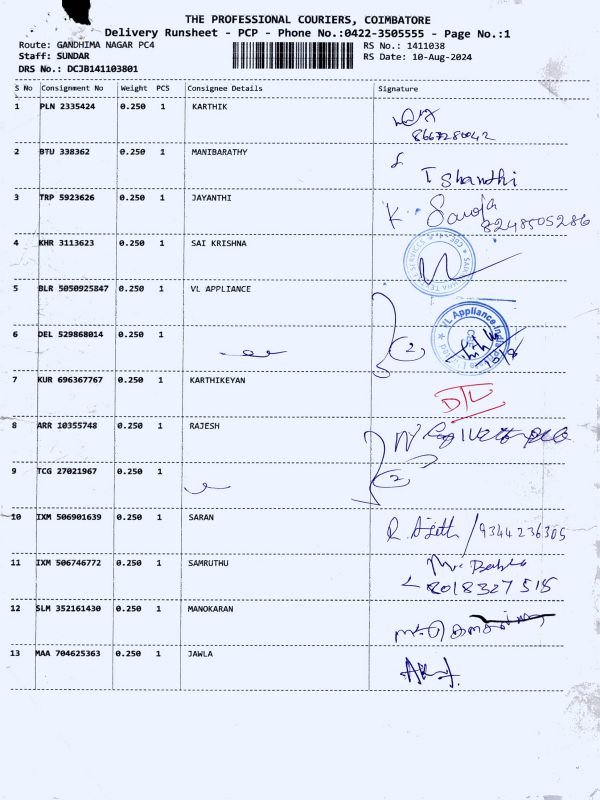 THE PROFESSIONAL COURIERS, COIMBATORE
Delivery Runsheet - PCP - Phone No.:0422-3505555 - Page No.:1
Route: GANDHIMA NAGAR PC4 RS No.: 1411038
Staff: SUNDAR RS Date: 10-Aug-2024
DRS No.: DCJB141103801
S No Consignment No Weight PCS Consignee Details Signature
1 PLN 2335424 0.250 1 KARTHIK
8667280042
2 BTU 338362 0.250 1 MANIBARATHY
T Shandhi
3 TRP 5923626 0.250 1 JAYANTHI K. Saroja
8248505286
4 KHR 3113623 0.250 1 SAI KRISHNA
5 BLR 5050925847 0.250 1 VL APPLIANCE
VL Appliance
6 DEL 529868014 0.250 1 2
10/8
7 KUR 696367767 0.250 1 KARTHIKEYAN
D/L
8 ARR 10355748 0.250 1 RAJESH
9 TCG 27021967 0.250 1 2
10 IXM 506901639 0.250 1 SARAN R. Ajeth / 9344236305
11 IXM 506746772 0.250 1 SAMRUTHU
8018327515
12 SLM 352161430 0.250 1 MANOKARAN
13 MAA 704625363 0.250 1 JAWLA